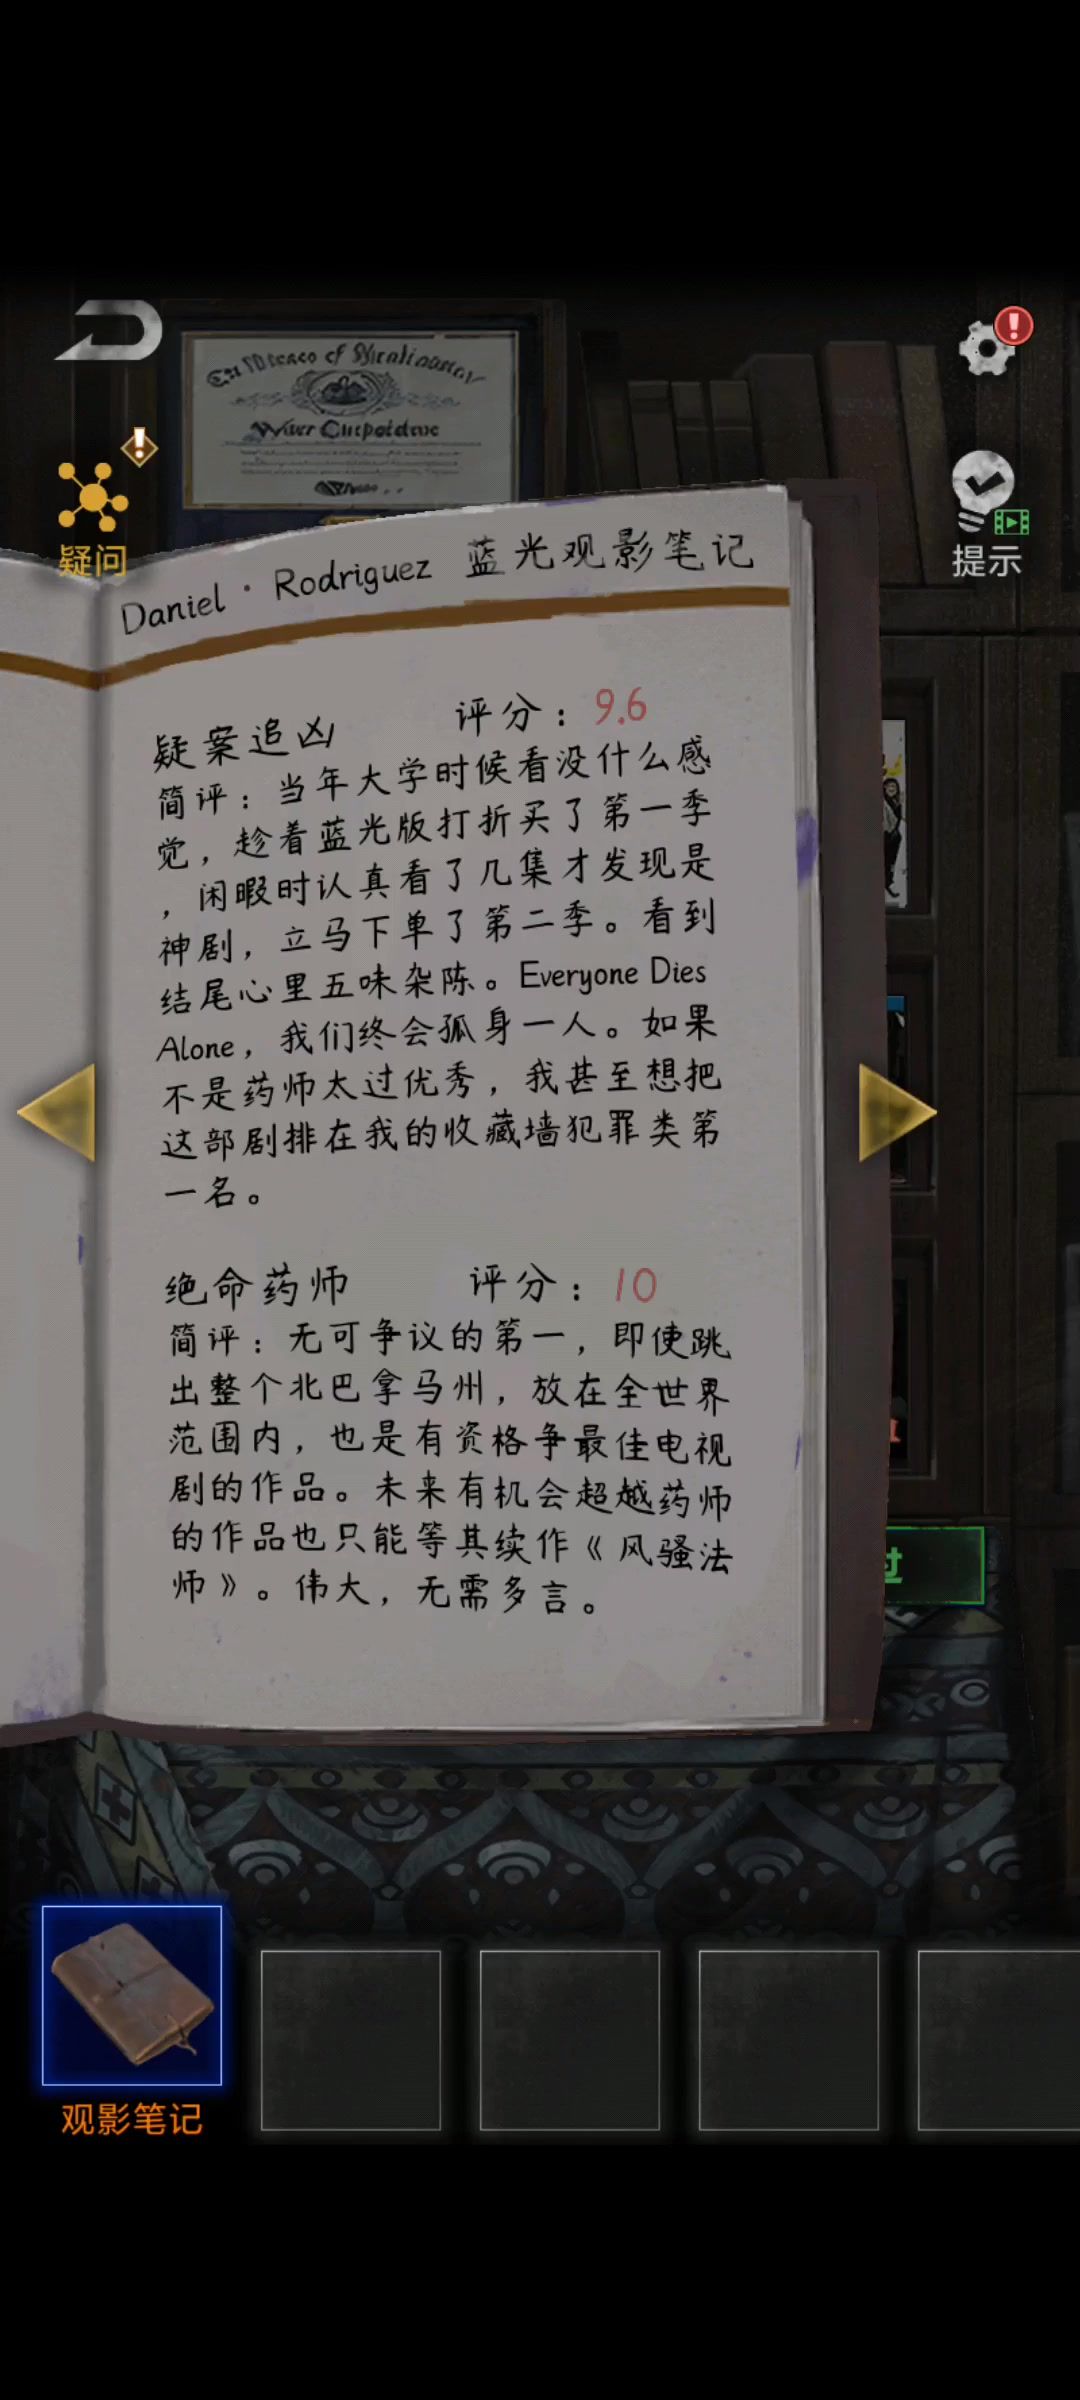 疑问
提示
Daniel · Rodriguez 蓝光观影笔记
疑案追凶 评分：9.6
简评：当年大学时候看没什么感
觉，趁着蓝光版打折买了第一季
，闲暇时认真看了几集才发现是
神剧，立马下单了第二季。看到
结尾心里五味杂陈。Everyone Dies
Alone，我们终会孤身一人。如果
不是药师太过优秀，我甚至想把
这部剧排在我的收藏墙犯罪类第
一名。
绝命药师 评分：10
简评：无可争议的第一，即使跳
出整个北巴拿马州，放在全世界
范围内，也是有资格争最佳电视
剧的作品。未来有机会超越药师
的作品也只能等其续作《风骚法
师》。伟大，无需多言。
过
观影笔记